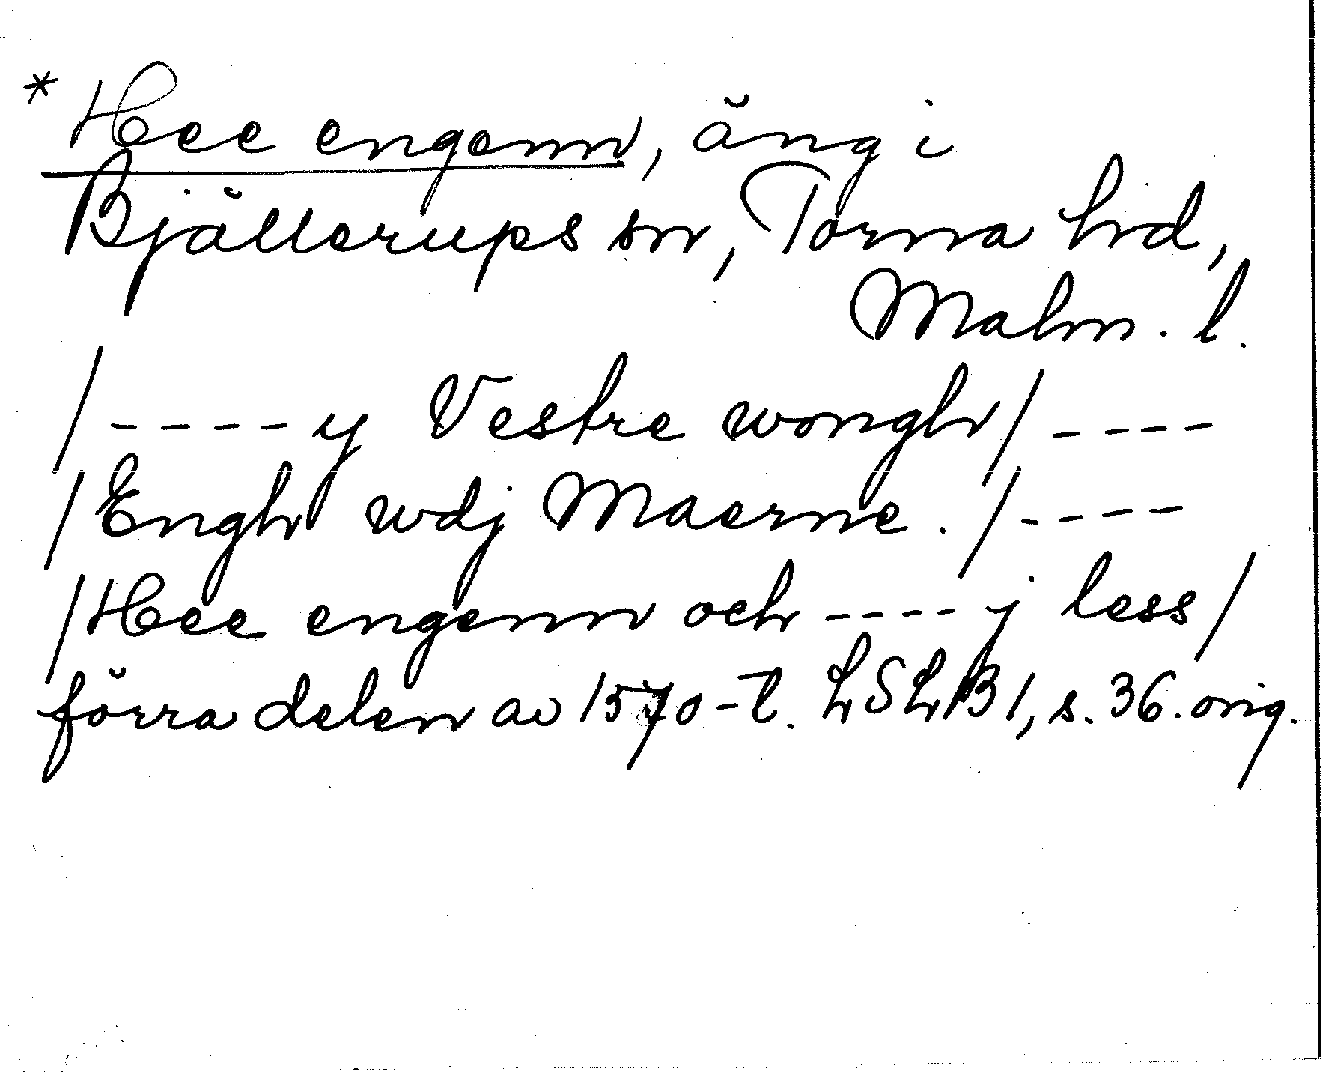 * Hee engenn, äng i
Bjällerups sn, Torna hrd,
Malm. l.
/ - - - - y Vestre wongh / - - - -
/ Engh wdj Maerne. / - - - -
/ Hee engenn och - - - - j less /
förra delen av 1570-t. LSLB 1, s. 36. orig.